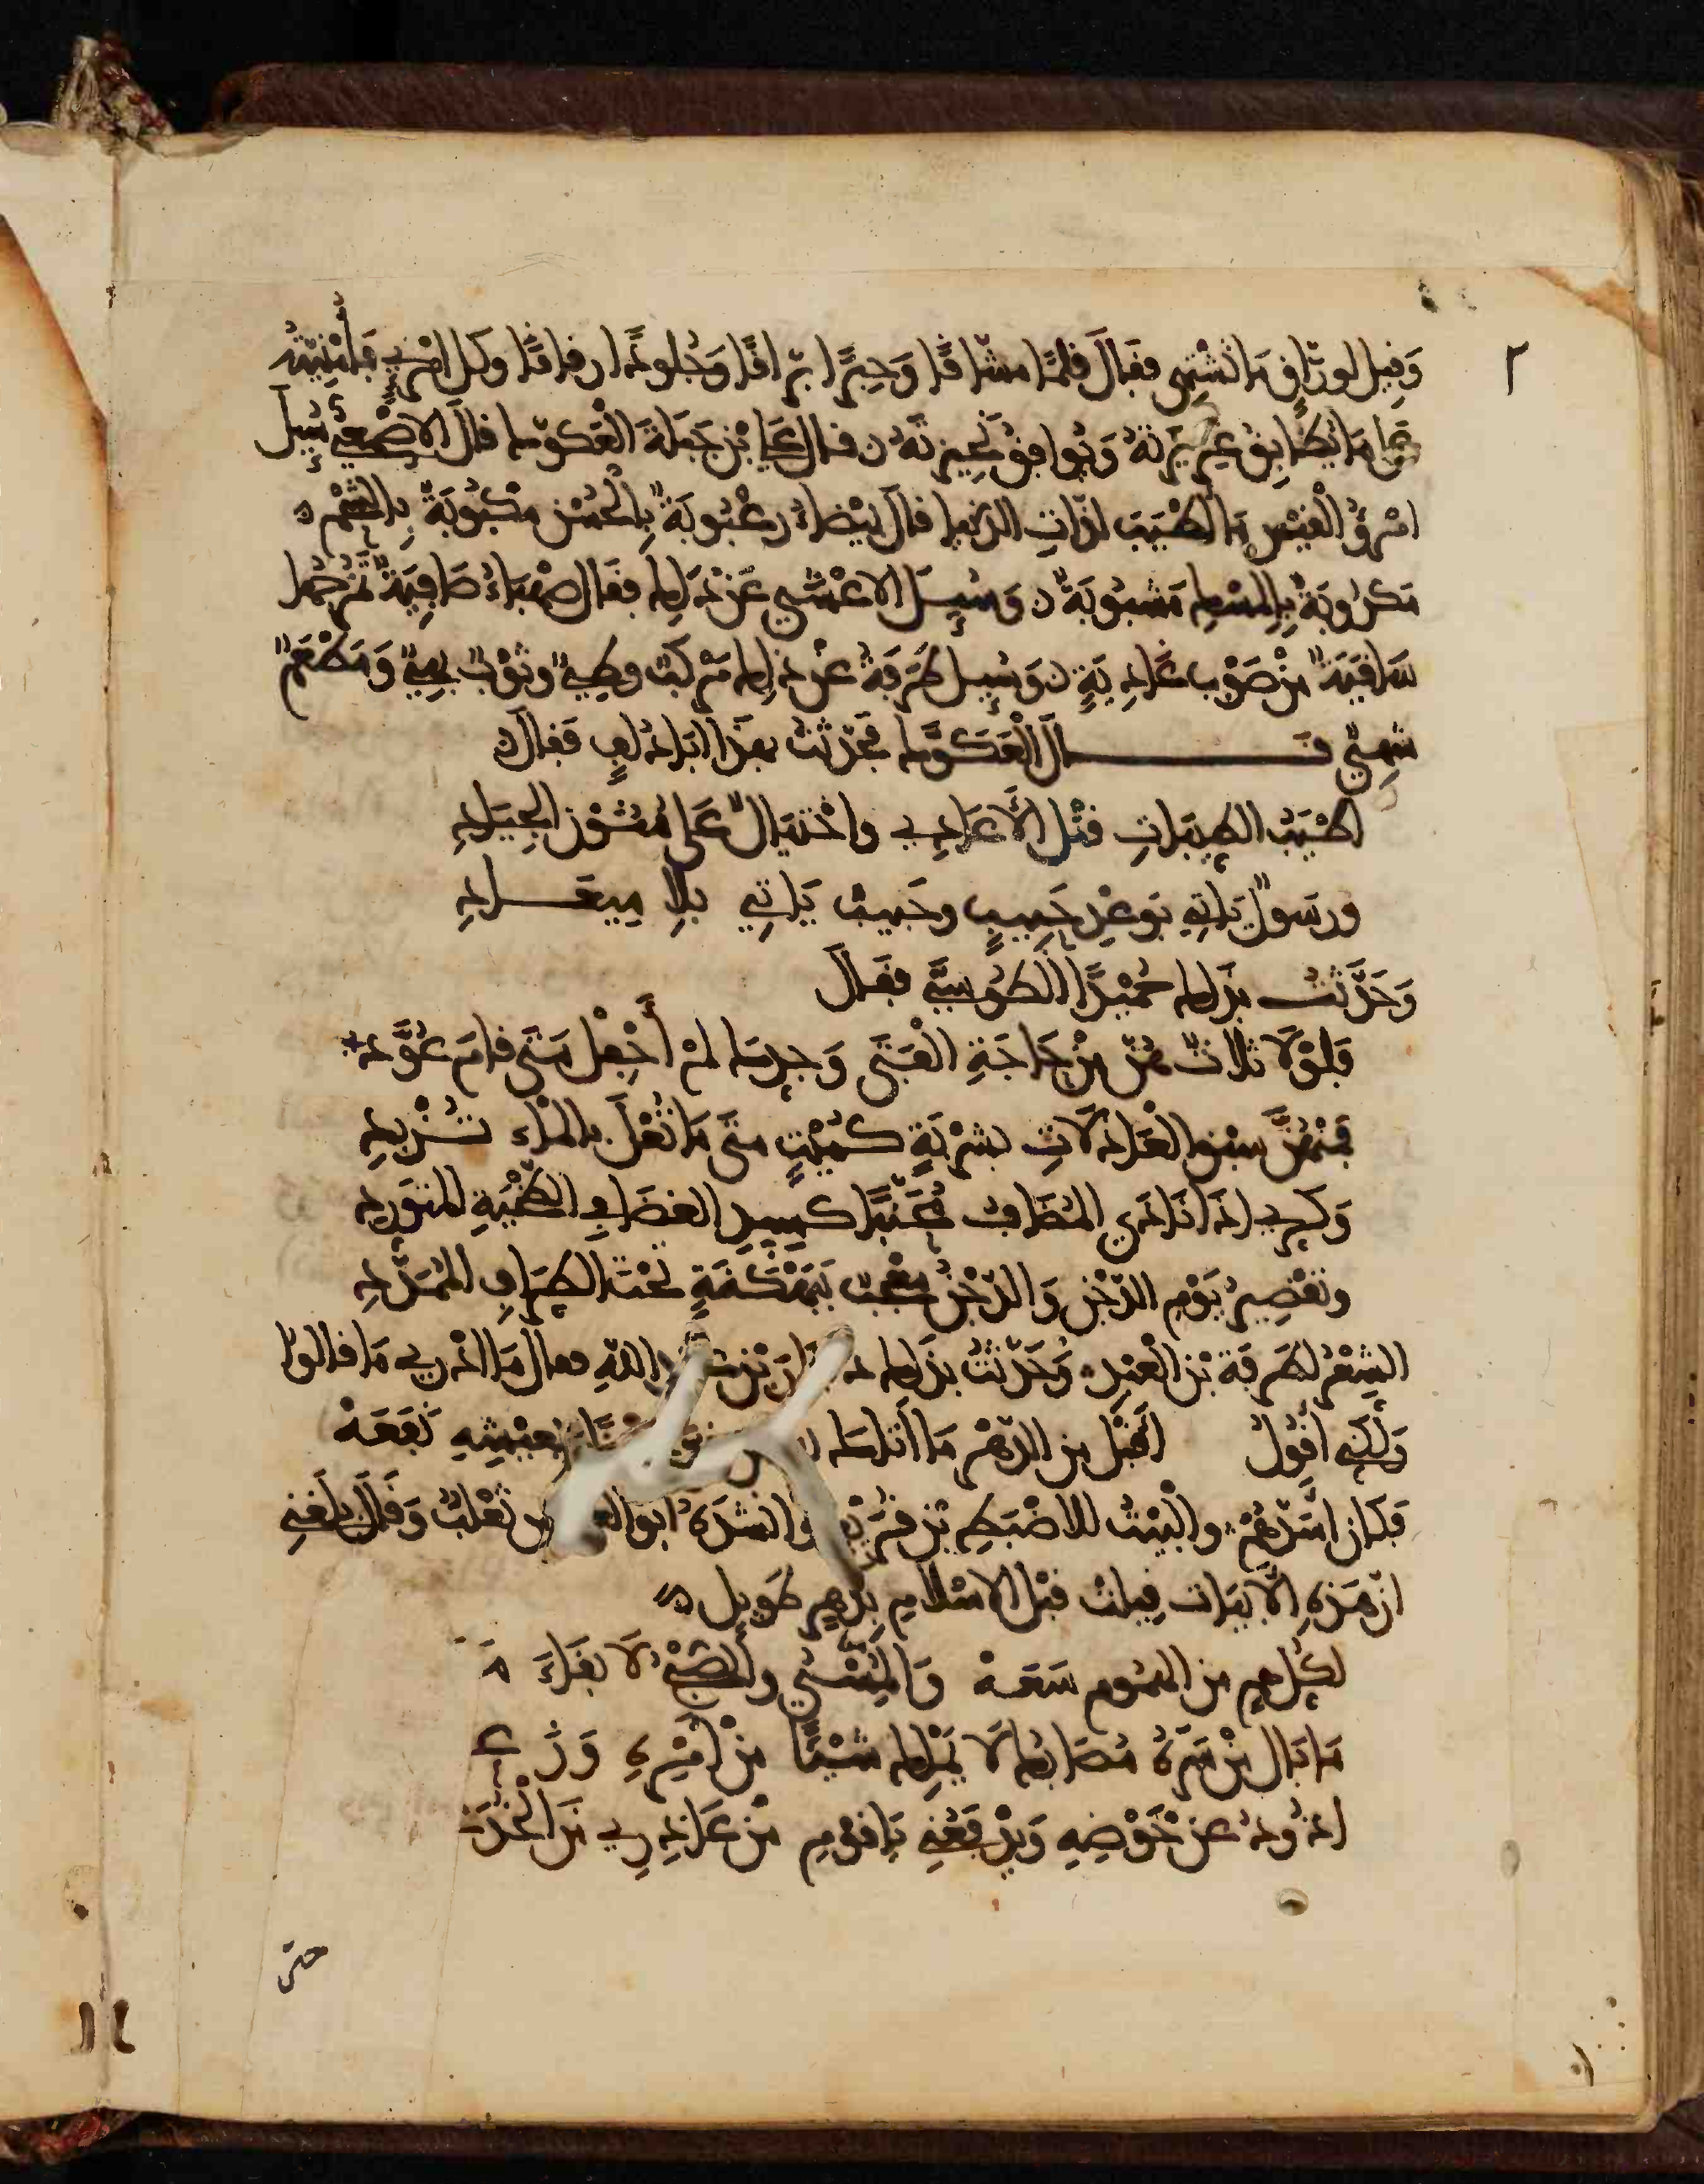 ٢
وَقِيلَ لورّاقٍ مَا تَشْتهي فقالَ قلمًا مشّاقًا وَحِبرًا برّاقًا وَجُلودًا رقاقًا وكل امرئٍ فأُمْنِيّتُه
مَا يُطَابِق غريزتهُ وَيُوافقُ نحيزتَهُ ن قال علي بْن جَبَلَةَ الْعَكوّك قالَ الاصْمَعيُّ سُئِلَ
امْرؤُ الْقَيْس مَا أطْيَبُ لذّاتِ الدّنيا قالَ بَيْضاءُ رعْبُوبَةٌ بِالْحُسْن مكْبُوبَةٌ بِالشّحْم
مَكرُوبَةٌ بِالمسْكِ مَشبُوبَةٌ ن وَسُئِلَ الاعْشَى عَنْ ذَلِكَ فقَال صهْبَاءُ صَافِيَةٌ تمْزجُها
سَاقيَةٌ مِنْ صَوْب غَادِيَةٍ ن وَسُئِل طَرَفَةُ عنْ ذلِكَ مَرْكبٌ وطِيٌّ وثَوْبٌ بهيٌّ وَمَطْعَمٌ
شهِيٌّ قــال الْعَكَوَّك فحَدّثتُ بهذَا ابَا دُلَفٍ فَقالَ ن
أطْيَبُ الطيبَاتِ قتْل الأعَادِي واخْتيَالٌ عَلى مُتُون الجِيَادِ
ورسَولٌ يَاتِي بوعْدِ حَبِيبٍ وحَبيبٌ يَاتِي بلا مِيعَــادِ
وَحَدَّثتُ بذَلك حُمَيْدًا الطّوسِيَّ فقَالَ
فَلوْلَا ثلاثٌ هُنّ مِنْ حَاجَةِ الْفَتَى وَجدِّكَ لمْ أَحْفِلْ مَتَى قامَ عُوَّدِ
فَمنْهُنَّ سبْق العَاذِلَاتِ بشرْبَةٍ كُمَيْتٍ متَى مَا تُعْلَ بالمْاءِ تُــزْبِدِ
وَكَرّي اذَا نَادَى المُضَافُ مُحَنَّبًا كسِيدِ الغضَا في الطّخْيَةِ المتوَرِّدِ
وتقْصِيرُ يَوْمِ الدّجْنِ وَالدّجْنُ مُعْجِبٌ بِبَهْكَنَةٍ تحْتَ الطِّرَافِ المُمَدَّدِ
الشِعْرُ لطَرفَةَ بْن العْبْدِ وَحَدّثْتُ بذَلِك اللّهِ فقال مَا ادْرِي مَا قالوا
وَلَكني اقُولُ اقْبَلْ مِن الدّهْر مَا أتَاكَ بِعَيْشِهِ نَفَعَهْ
فَكَان اسَدّهُمْ والْبَيْتُ للاضْبَطِ بْن قُرَيْع وانشدَهُ ابو ثعْلبٌ وَقَالَ بَلَغَني
انّ هَذِهِ الأبْيَات قِيلت قبْلَ الاسْلامِ بدَهرٍ طَويل
لكلّ همٍ من الهمُومِ سَعَهْ وَالمُسْيُ والصُّبْحُ لَا بقَاءَ
مَا بَال منْ سَرّهُ مُصَابُك لَا يَمْلِك شيْئًا مِن أمْرِهِ وَزَعَهْ
اذُودُ عن حَوْضِهِ وَيدْفَعُني يَا قوْمِ منْ عَاذِرِي مِنَ الخُدَعَهْ